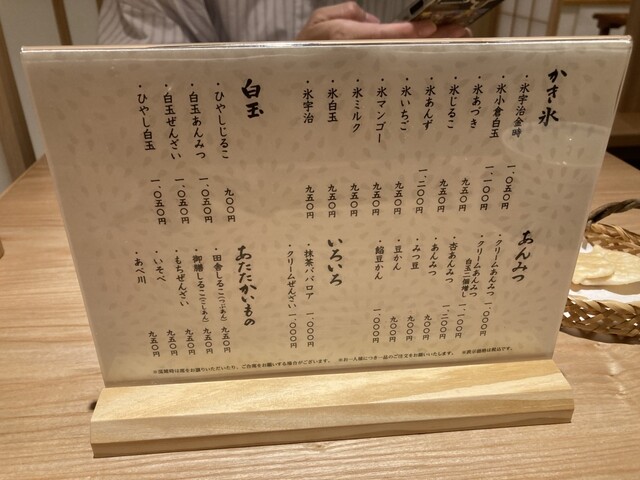 かき氷
・氷宇治金時 一、〇五〇円
・氷小倉白玉 一、一〇〇円
・氷あづき 九五〇円
・氷じるこ 九五〇円
・氷あんず 一、二〇〇円
・氷いちご 九五〇円
・氷マンゴー 九五〇円
・氷ミルク 九五〇円
・氷白玉 九五〇円
・氷宇治 九五〇円
白玉
・ひやしじるこ 九〇〇円
・白玉あんみつ 一、〇五〇円
・白玉ぜんざい 一、〇五〇円
・ひやし白玉 一、〇五〇円
あんみつ
・クリームあんみつ 一、〇〇〇円
・クリームあんみつ 一、一〇〇円
白玉二個増し
・杏あんみつ 一、二〇〇円
・あんみつ 九〇〇円
・みつ豆 九〇〇円
・豆かん 九〇〇円
・餡豆かん 一、〇〇〇円
いろいろ
・抹茶ババロア 一、〇〇〇円
・クリームぜんざい 一、〇〇〇円
あたたかいもの
・田舎しるこ(つぶあん) 九五〇円
・御膳しるこ(こしあん) 九五〇円
・もちぜんざい 九五〇円
・いそべ 九五〇円
・あべ川 九五〇円
※混雑時は席をお譲りいただいたり、ご合席をお願いする場合がございます。 ※お一人様につき一品のご注文をお願いいたします。 ※表示価格は税込です。